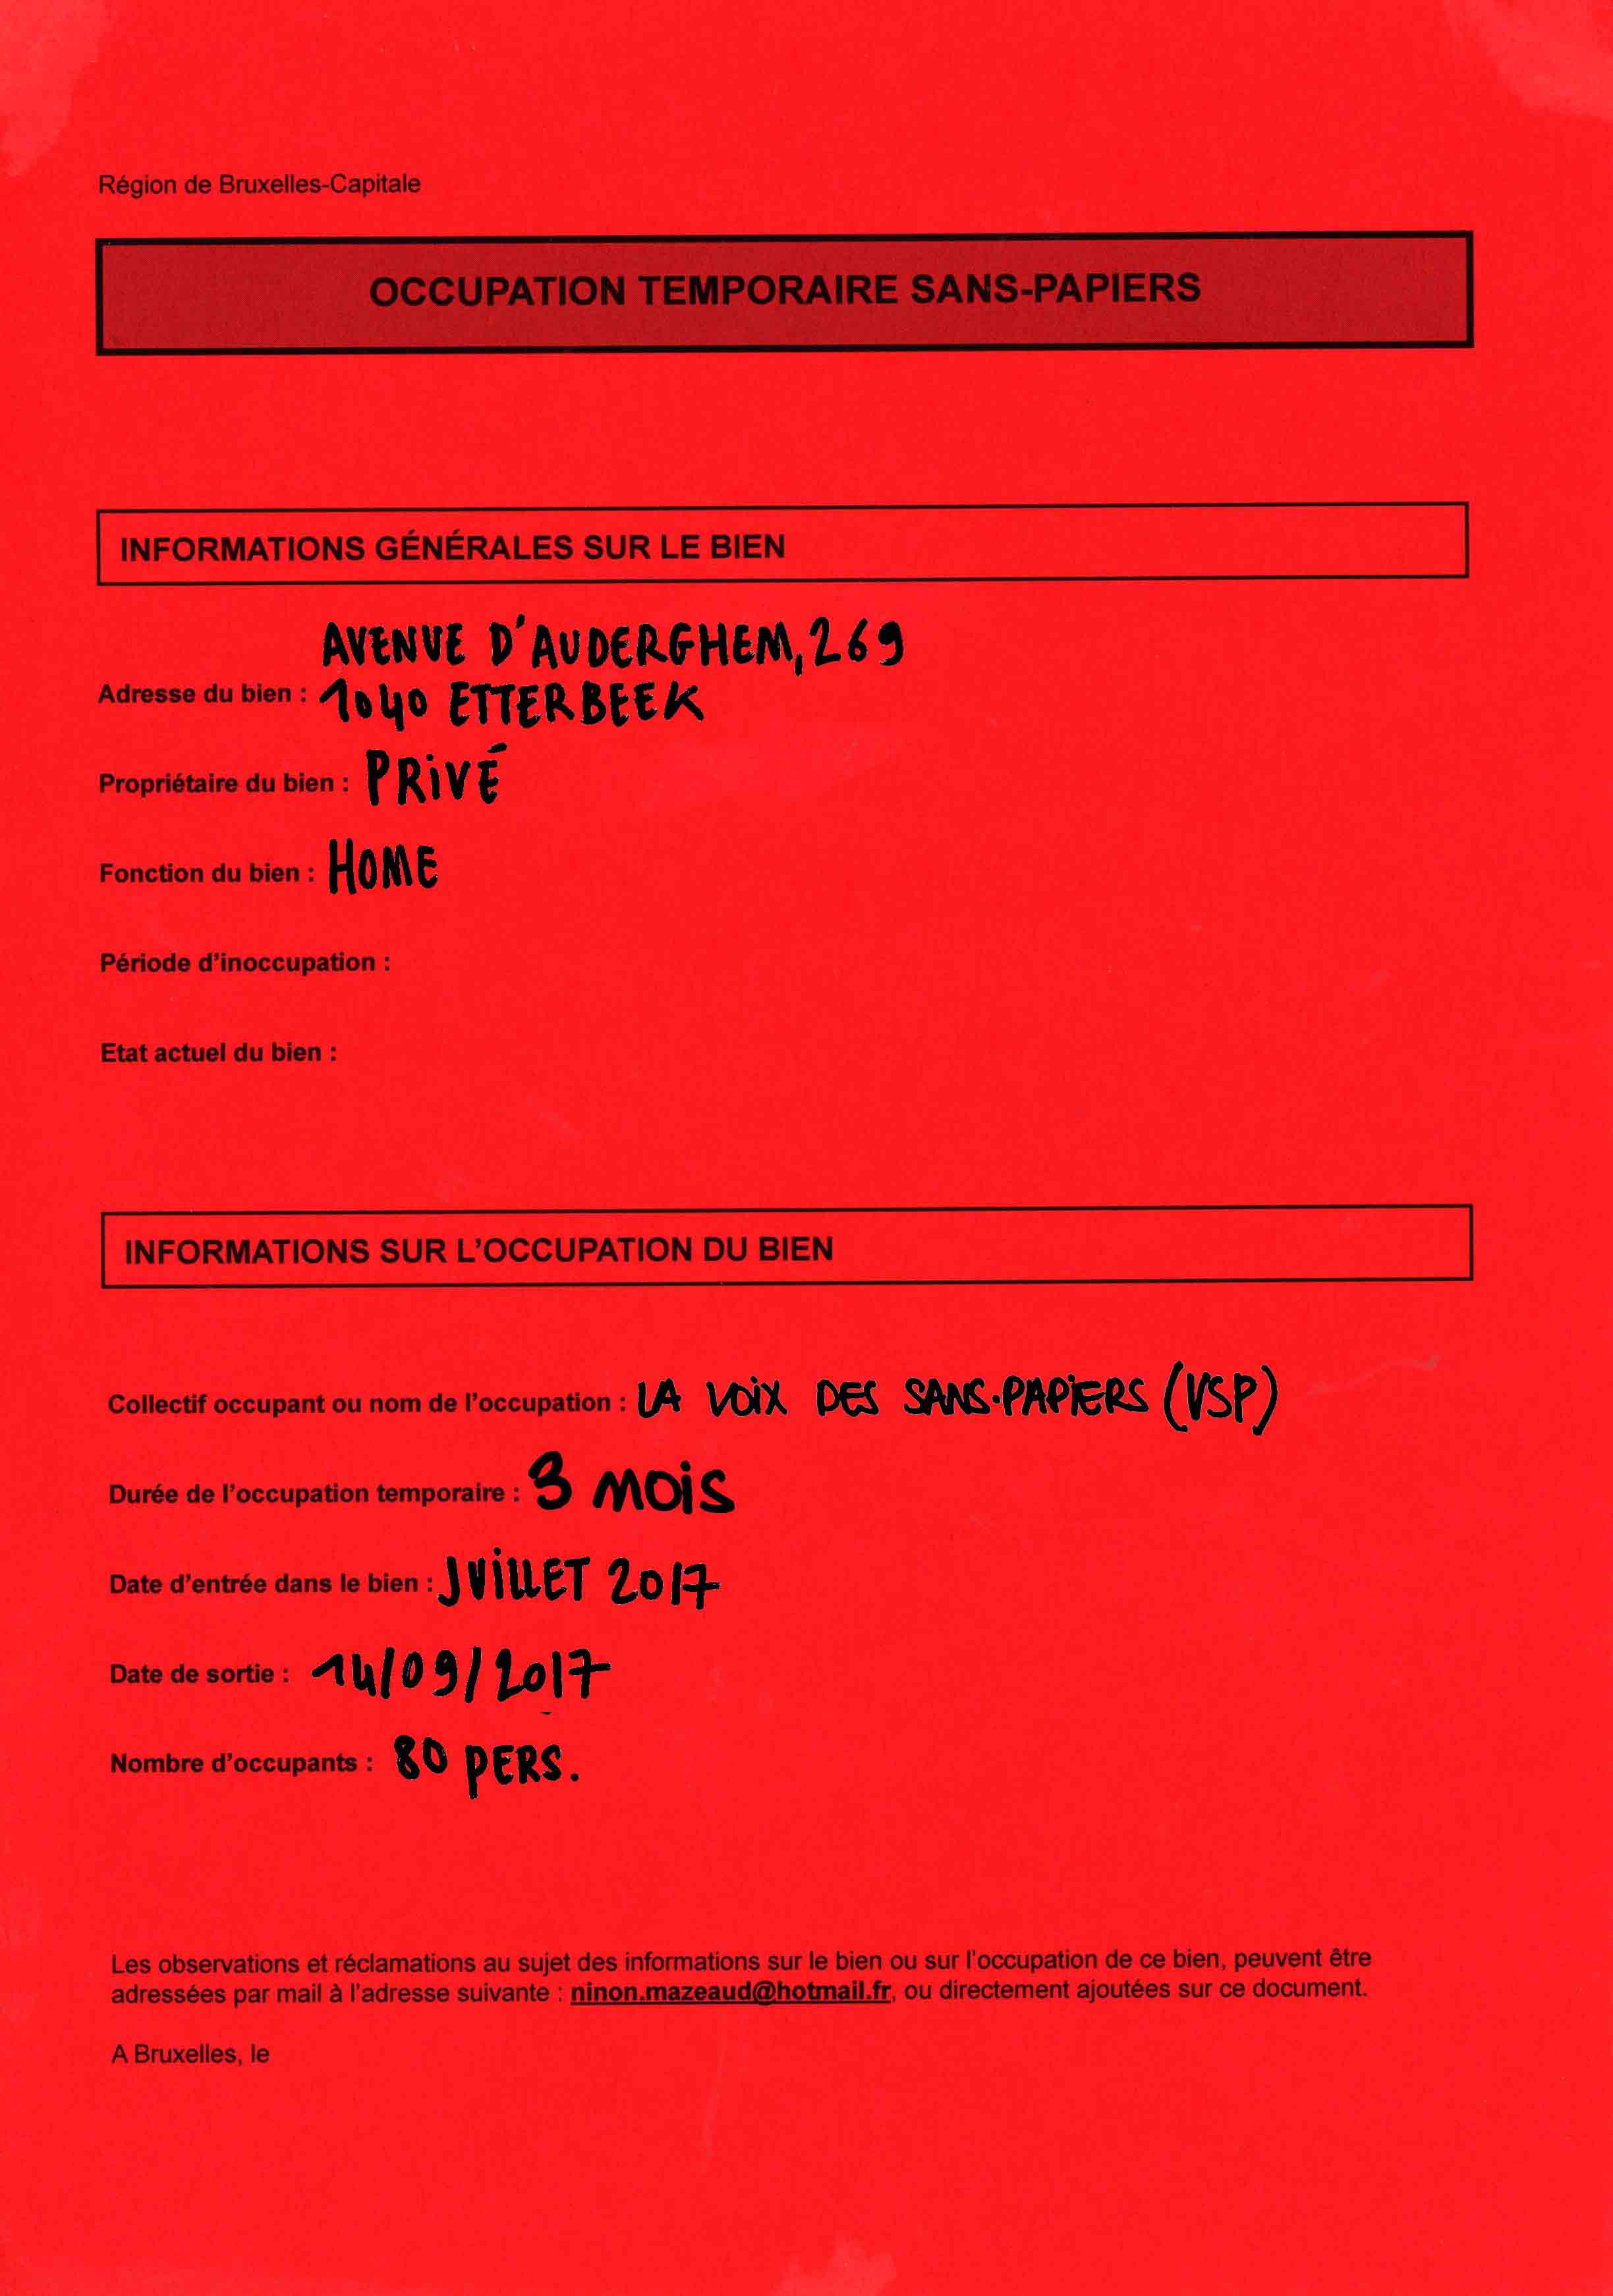 Région de Bruxelles-Capitale
OCCUPATION TEMPORAIRE SANS-PAPIERS
INFORMATIONS GÉNÉRALES SUR LE BIEN
AVENUE D'AUDERGHEM, 269
Adresse du bien : 1040 ETTERBEEK
Propriétaire du bien : PRIVÉ
Fonction du bien : HOME
Période d'inoccupation :
Etat actuel du bien :
INFORMATIONS SUR L'OCCUPATION DU BIEN
Collectif occupant ou nom de l'occupation : LA VOIX DES SANS-PAPIERS (VSP)
Durée de l'occupation temporaire : 3 MOIS
Date d'entrée dans le bien : JUILLET 2017
Date de sortie : 14/09/2017
Nombre d'occupants : 80 PERS.
Les observations et réclamations au sujet des informations sur le bien ou sur l'occupation de ce bien, peuvent être
adressées par mail à l'adresse suivante : ninon.mazeaud@hotmail.fr, ou directement ajoutées sur ce document.
A Bruxelles, le